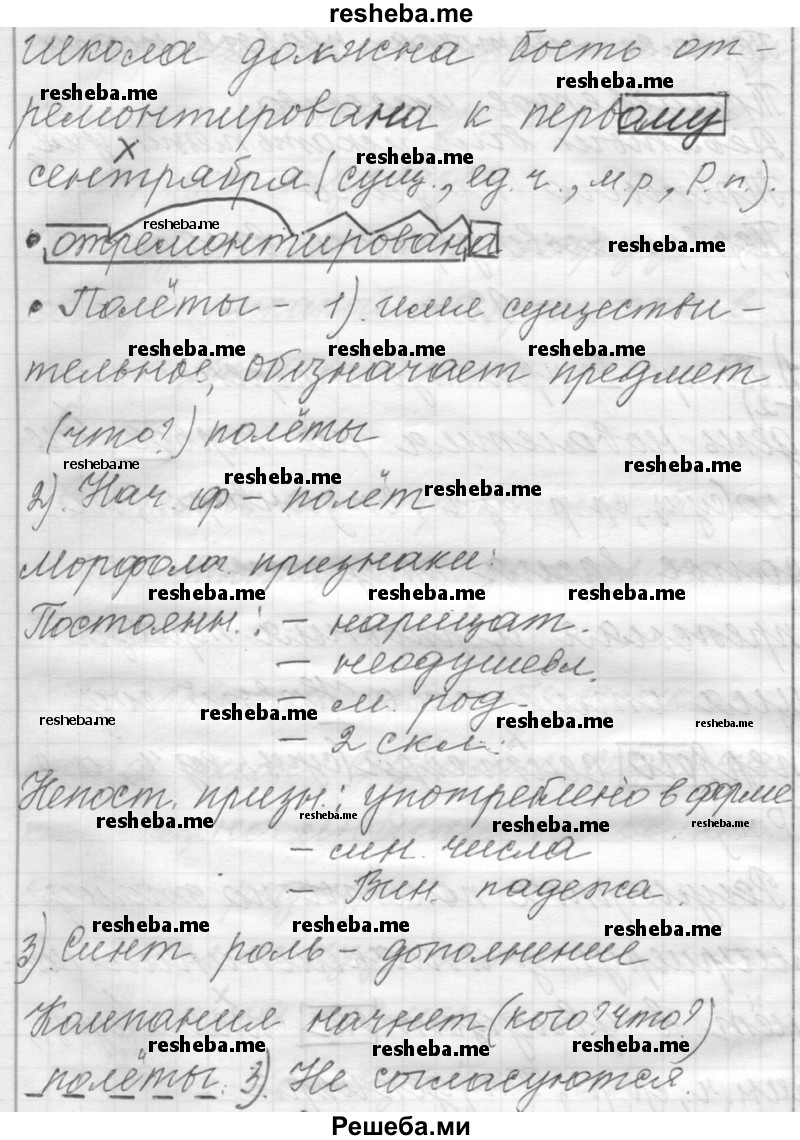 resheba.me
школа должна быть от-
resheba.me resheba.me
ремонтирована к первому
resheba.me
сентрября (сущ., ед.ч., м.р, Р.п.).
resheba.me
• отремонтирована
resheba.me
• Полёты - 1). имя существи-
resheba.me resheba.me resheba.me
тельное, обозначает предмет
(что?) полёты
resheba.me resheba.me resheba.me resheba.me
2). Нач. ф - полёт
Морфолог. признаки:
resheba.me resheba.me resheba.me
Постоянн.: - нарицат.
- неодушевл.
- м. род-
resheba.me resheba.me resheba.me resheba.me
- 2 скл.
Непост. призн.: употреблено в форме
resheba.me resheba.me resheba.me resheba.me
- мн. числа
- Вин. падежа.
resheba.me resheba.me resheba.me
3) Синт. роль - дополнение
Компания начнет (кого? что?)
resheba.me resheba.me resheba.me
полёты. 3). Не согласуются.
Решеба.ми